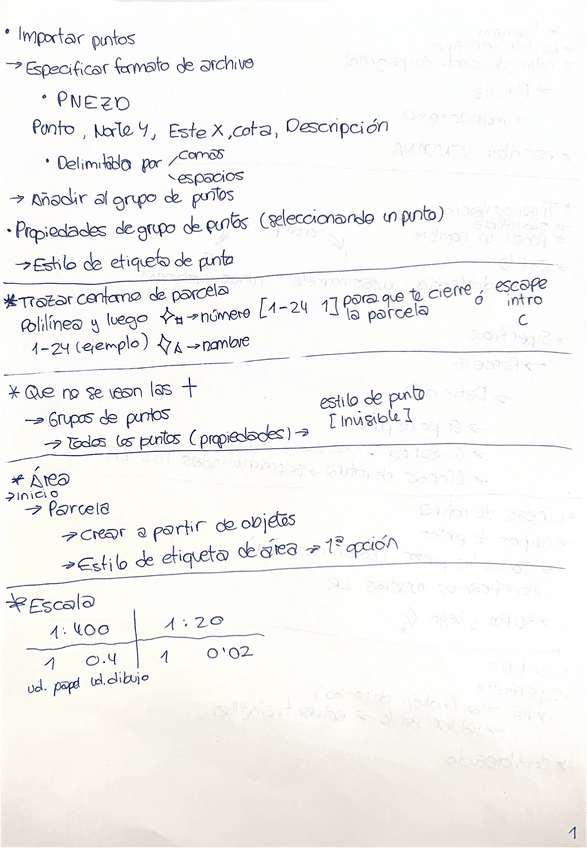 • Importar puntos
→ Especificar formato de archivo
• PNEZD
Punto, Norte Y, Este X, cota, Descripción
• Delimitado por comas
espacios
→ Añadir al grupo de puntos
• Propiedades de grupo de puntos (seleccionando un punto)
→ Estilo de etiqueta de punto
* Trazar contorno de parcela
Polilínea y luego # → número [1-24 1] para que te cierre la parcela ó escape intro C
1-24 (ejemplo) A → nombre
* Que no se vean las +
→ Grupos de puntos
→ Todos los puntos (propiedades) → estilo de punto [Invisible]
* Área
→ inicio
→ Parcela
→ Crear a partir de objetos
→ Estilo de etiqueta de área → 1ª opción
* Escala
1:400 1:20
1 0.4 1 0'02
ud. papel ud. dibujo
1